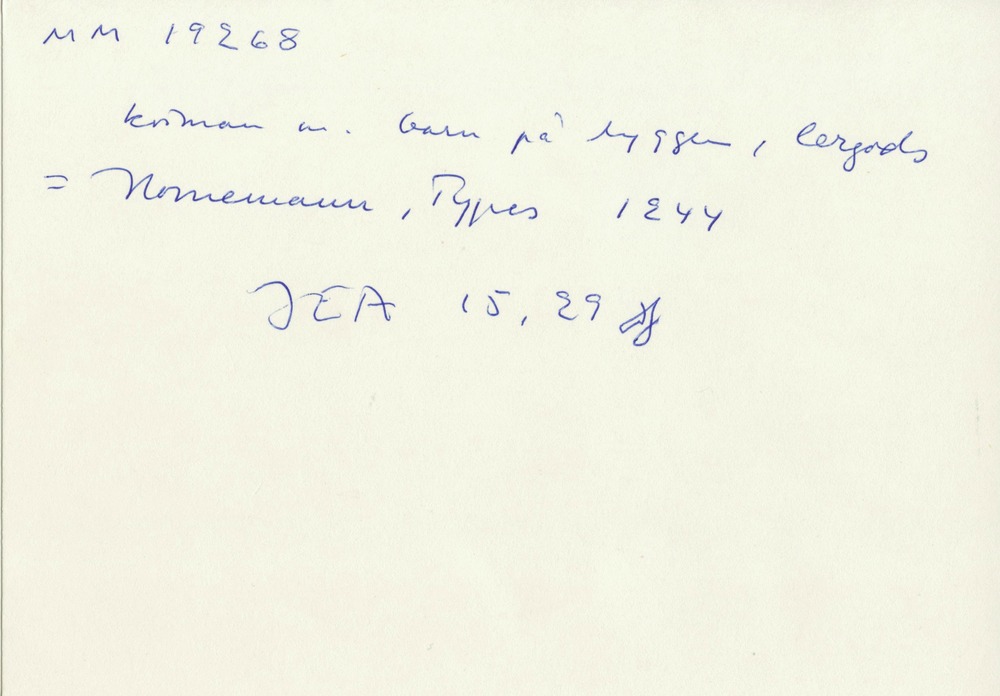 MM 19268
kvinna m. barn på ryggen, lergods
= Hornemann, Types 1244
JEA 15, 29 ff